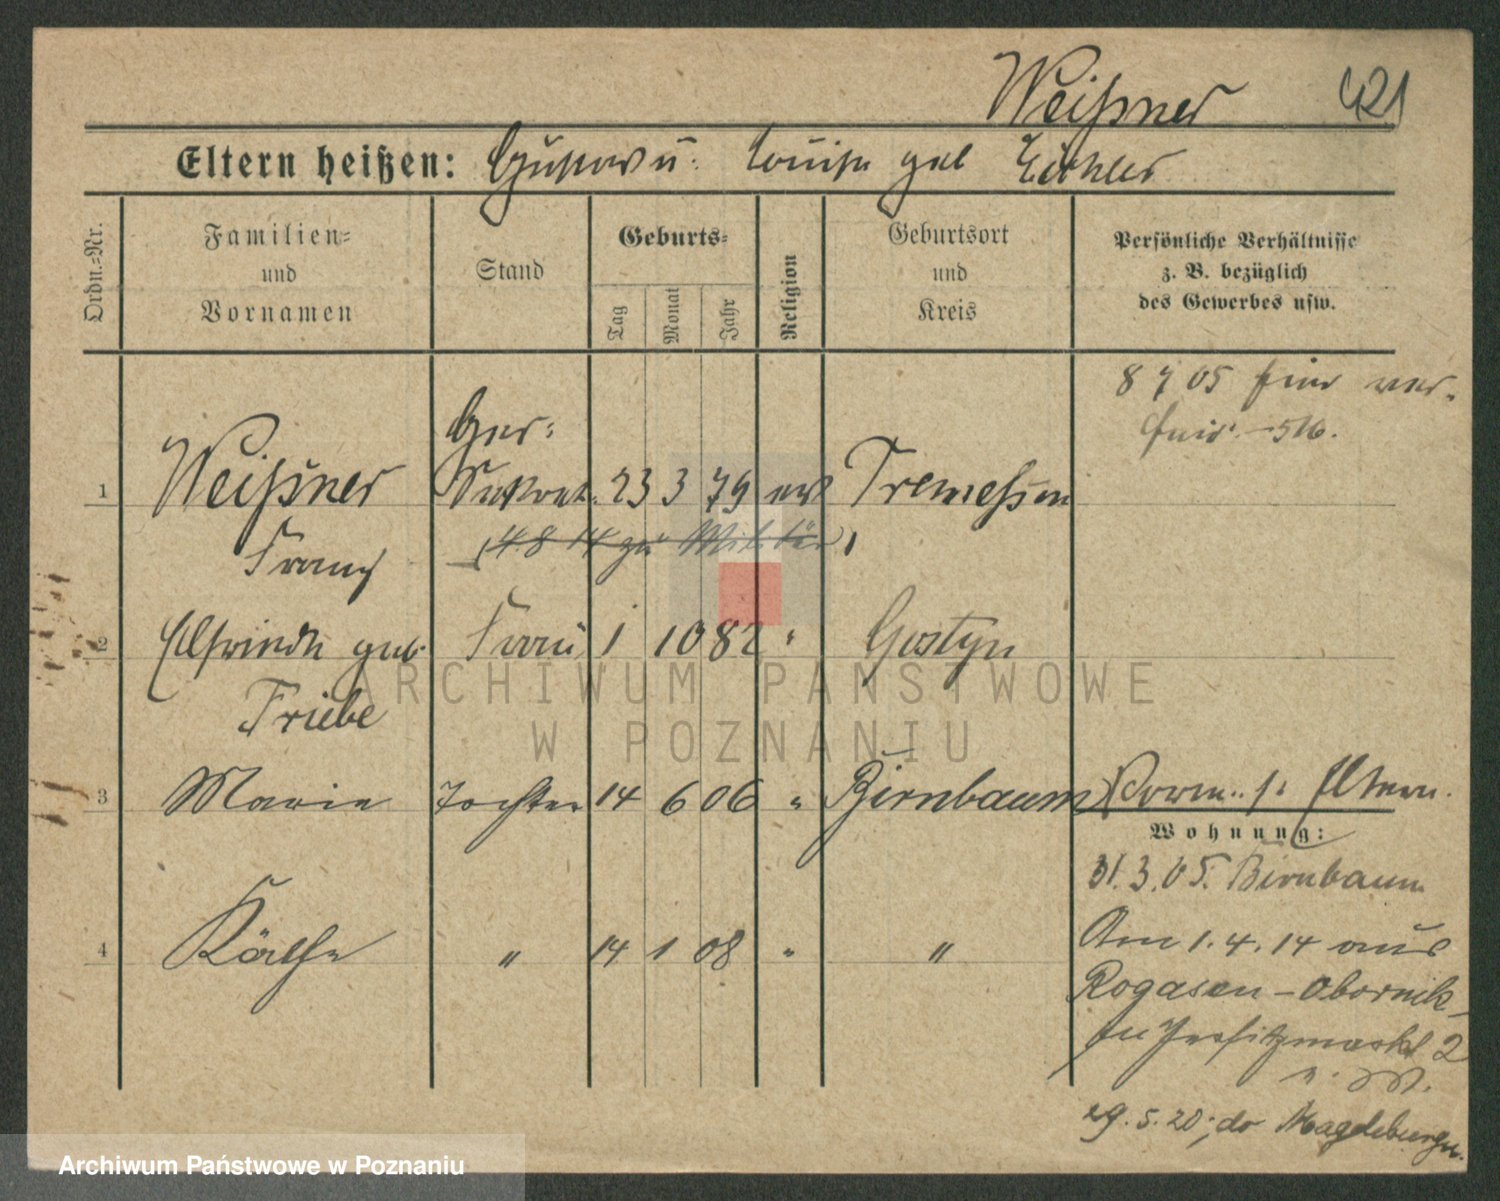 Weißner 421
Eltern heißen: Gustav u. Louise geb Eichler
Ordn.=Nr.
Familien=
und
Vornamen
Stand
Geburts=
Tag
Monat
Jahr
Religion
Geburtsort
und
Kreis
Persönliche Verhältnisse
z. B. bezüglich
des Gewerbes usw.
8 7 05
Ger=
1 Weißner Sekret. 23 3 79 ev Tremessen
Franz
(4 8 14 zu Militär)
2 Elfriede geb. Frau 1 10 82 " Gostyn
Triebe
3 Marie Tochter 14 6 06 " Birnbaum
s. Eltern.
Wohnung:
31.3.05. Birnbaum
4 Käthe " 14 1 08 " "
Am 1.4.14 aus
Rogasen - Obornik
2
29.5.20, do Magdeburg
ARCHIWUM PAŃSTWOWE
W POZNANIU
Archiwum Państwowe w Poznaniu